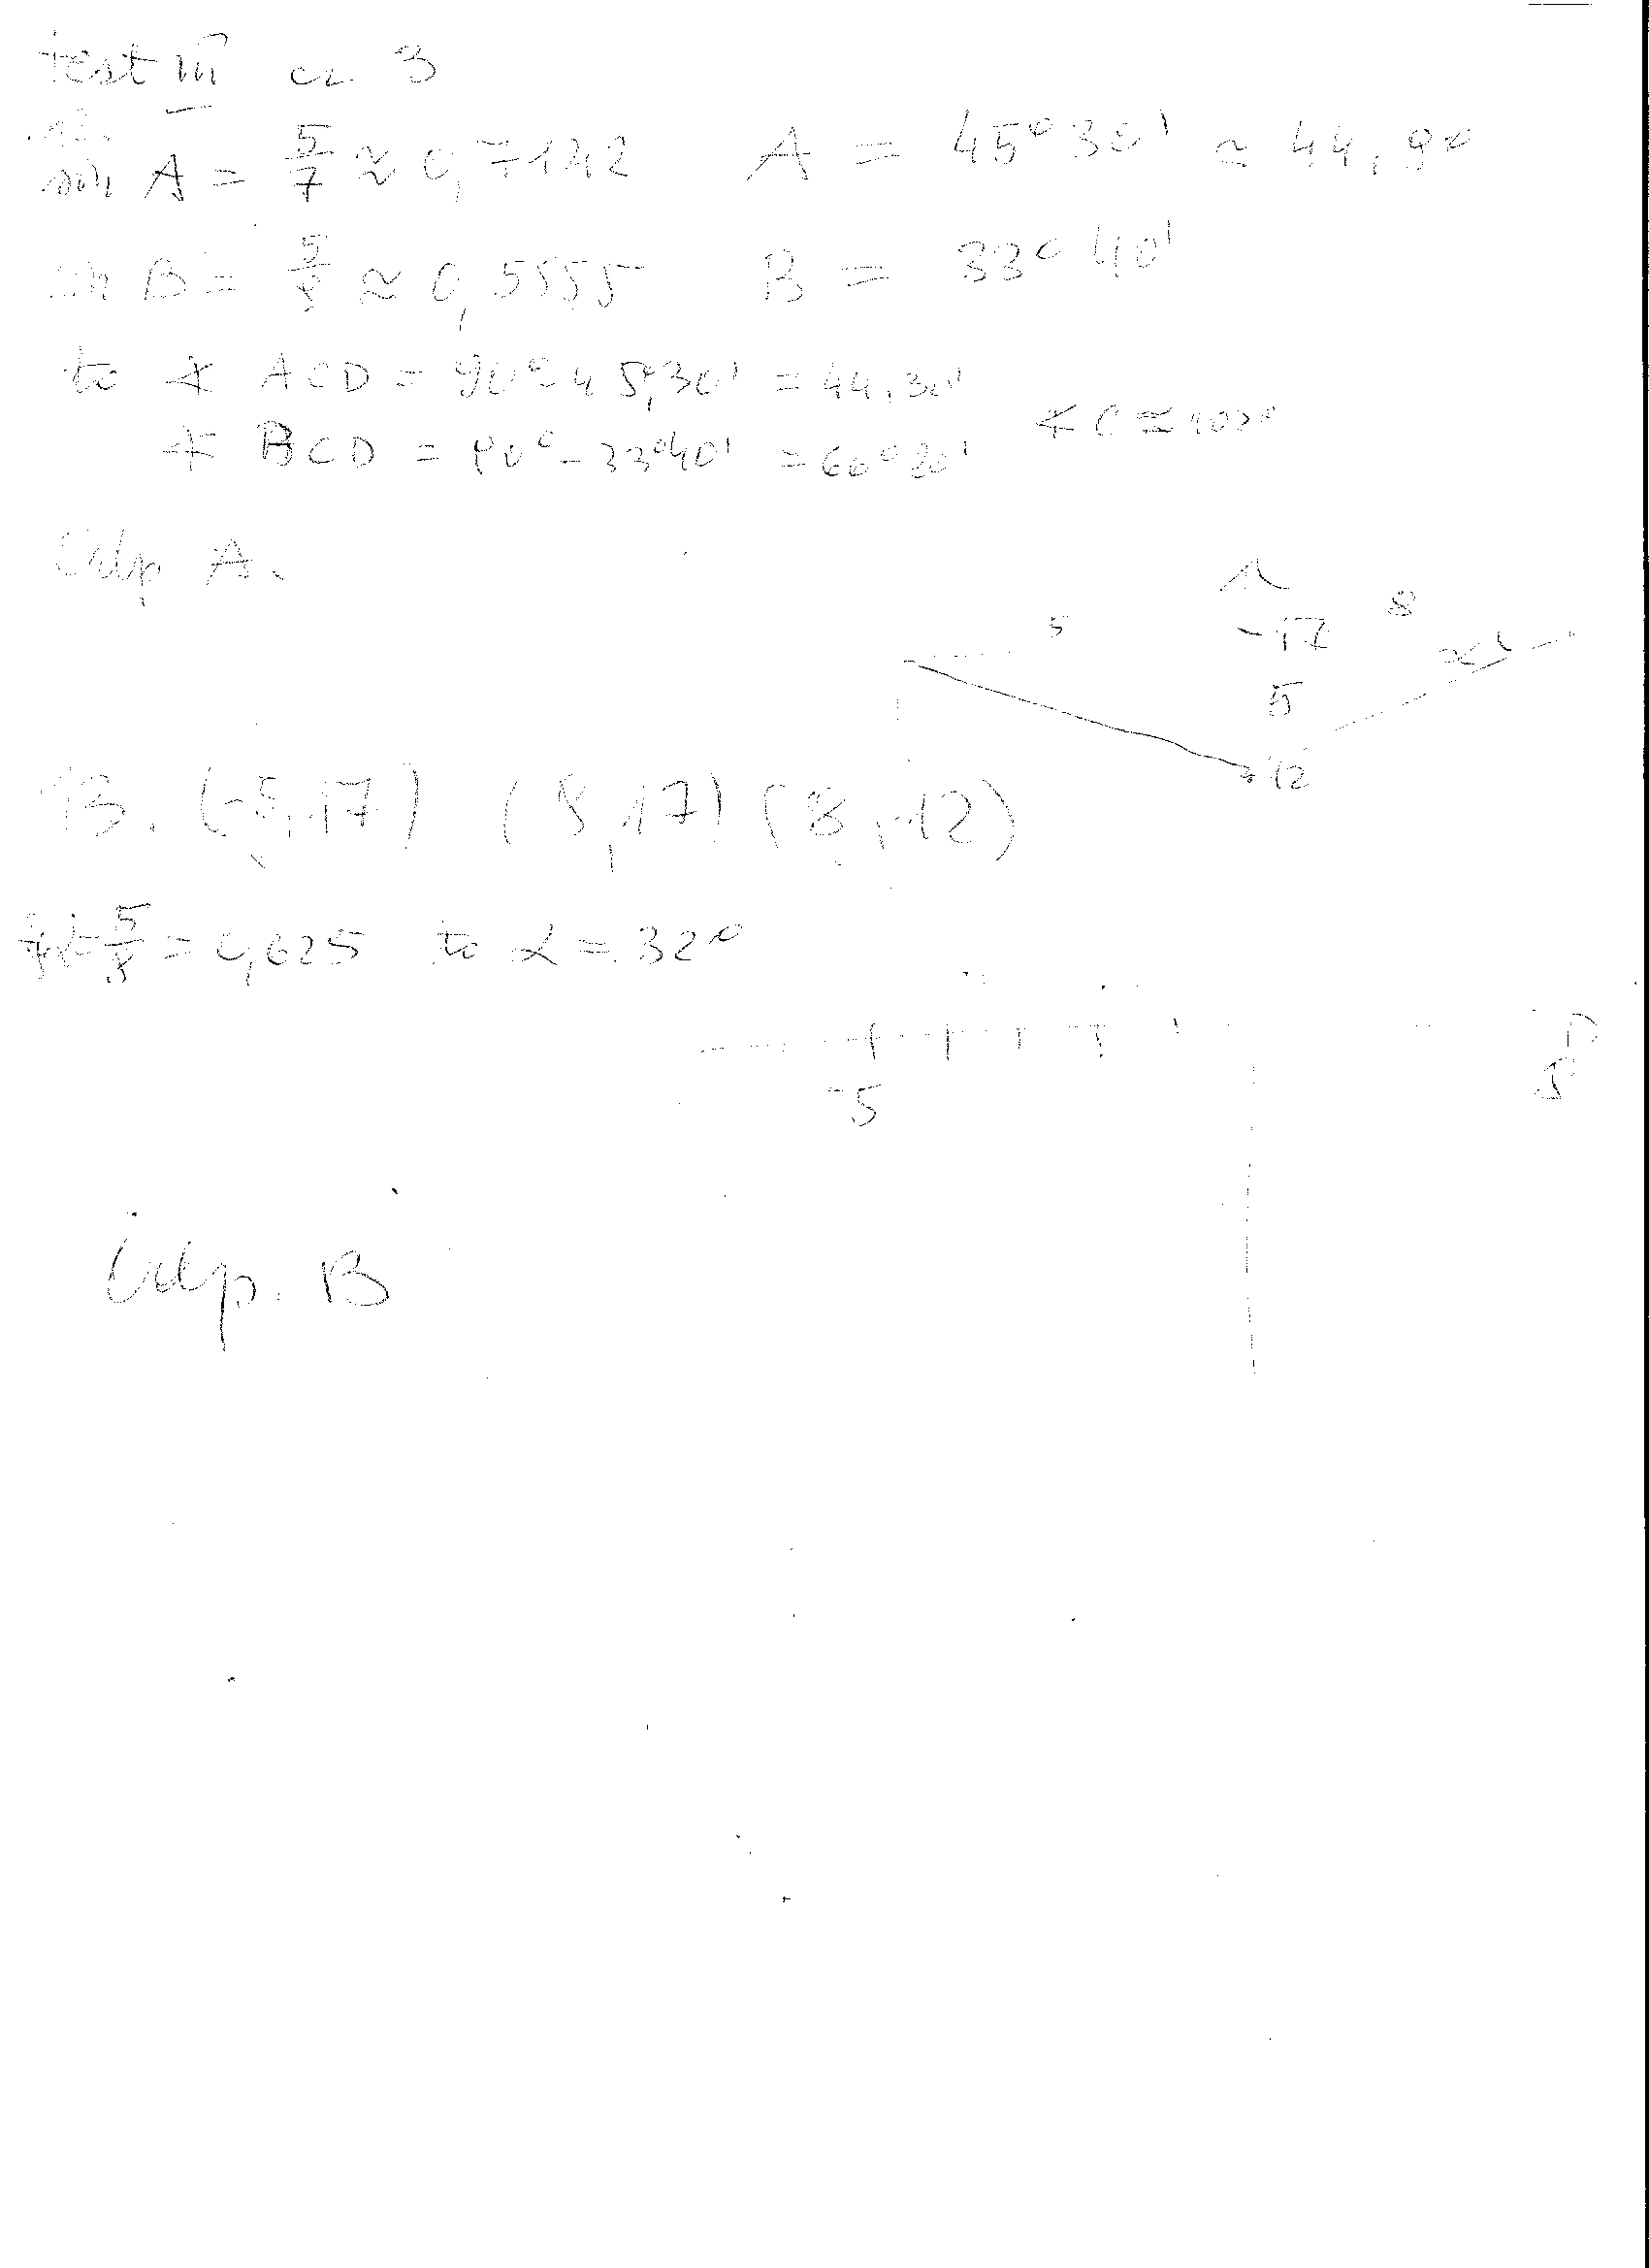 test III cz. 3
12.
sin A = 5/7 ≈ 0,7142 A = 45°30' ≈ 44,90
sin B = 5/9 ≈ 0,5555 B = 33°40'
to ∢ ACD = 90°-45°,30' = 44,30'
∢ BCD = 90°-33°40' = 60°20'
∢ C ≈
Odp A.
5
-17
8
5
12
13. (-5,17) (8,17) (8,-12)
5/8 = 0,625 to α = 32°
-5
8
Odp. B